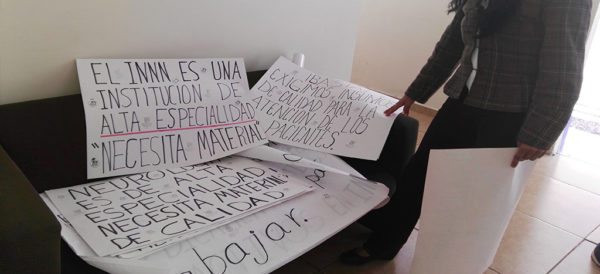 EL INNN ES UNA
INSTITUCIÓN DE
ALTA ESPECIALIDAD
"NECESITA MATERIAL
EXIGIMOS
DE CALIDAD PARA LA
ATENCIÓN DE LOS
PACIENTES.
ES DE ALTA
ESPECIALIDAD
NECESITA MATERIAL
DE CALIDAD
bajar.